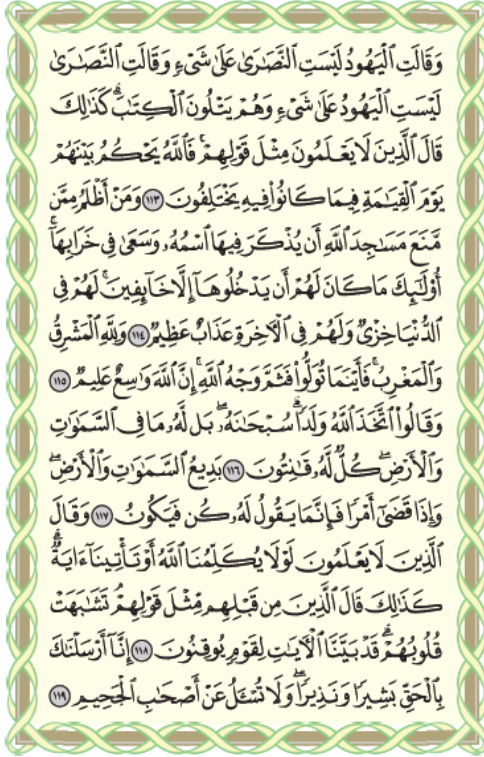 وَقَالَتِ ٱلْيَهُودُ لَيْسَتِ ٱلنَّصَـٰرَىٰ عَلَىٰ شَىْءٍ وَقَالَتِ ٱلنَّصَـٰرَىٰ
لَيْسَتِ ٱلْيَهُودُ عَلَىٰ شَىْءٍ وَهُمْ يَتْلُونَ ٱلْكِتَـٰبَ ۗ كَذَٰلِكَ
قَالَ ٱلَّذِينَ لَا يَعْلَمُونَ مِثْلَ قَوْلِهِمْ ۚ فَٱللَّهُ يَحْكُمُ بَيْنَهُمْ
يَوْمَ ٱلْقِيَـٰمَةِ فِيمَا كَانُوا۟ فِيهِ يَخْتَلِفُونَ ١١٣ وَمَنْ أَظْلَمُ مِمَّن
مَّنَعَ مَسَـٰجِدَ ٱللَّهِ أَن يُذْكَرَ فِيهَا ٱسْمُهُۥ وَسَعَىٰ فِى خَرَابِهَآ ۚ
أُو۟لَـٰٓئِكَ مَا كَانَ لَهُمْ أَن يَدْخُلُوهَآ إِلَّا خَآئِفِينَ ۚ لَهُمْ فِى
ٱلدُّنْيَا خِزْىٌ وَلَهُمْ فِى ٱلْـَٔاخِرَةِ عَذَابٌ عَظِيمٌ ١١٤ وَلِلَّهِ ٱلْمَشْرِقُ
وَٱلْمَغْرِبُ ۚ فَأَيْنَمَا تُوَلُّوا۟ فَثَمَّ وَجْهُ ٱللَّهِ ۚ إِنَّ ٱللَّهَ وَٰسِعٌ عَلِيمٌ ١١٥
وَقَالُوا۟ ٱتَّخَذَ ٱللَّهُ وَلَدًا ۗ سُبْحَـٰنَهُۥ ۖ بَل لَّهُۥ مَا فِى ٱلسَّمَـٰوَٰتِ
وَٱلْأَرْضِ ۖ كُلٌّ لَّهُۥ قَـٰنِتُونَ ١١٦ بَدِيعُ ٱلسَّمَـٰوَٰتِ وَٱلْأَرْضِ ۖ
وَإِذَا قَضَىٰٓ أَمْرًا فَإِنَّمَا يَقُولُ لَهُۥ كُن فَيَكُونُ ١١٧ وَقَالَ
ٱلَّذِينَ لَا يَعْلَمُونَ لَوْلَا يُكَلِّمُنَا ٱللَّهُ أَوْ تَأْتِينَآ ءَايَةٌ ۗ
كَذَٰلِكَ قَالَ ٱلَّذِينَ مِن قَبْلِهِم مِّثْلَ قَوْلِهِمْ ۘ تَشَـٰبَهَتْ
قُلُوبُهُمْ ۗ قَدْ بَيَّنَّا ٱلْـَٔايَـٰتِ لِقَوْمٍ يُوقِنُونَ ١١٨ إِنَّآ أَرْسَلْنَـٰكَ
بِٱلْحَقِّ بَشِيرًا وَنَذِيرًا ۖ وَلَا تُسْـَٔلُ عَنْ أَصْحَـٰبِ ٱلْجَحِيمِ ١١٩